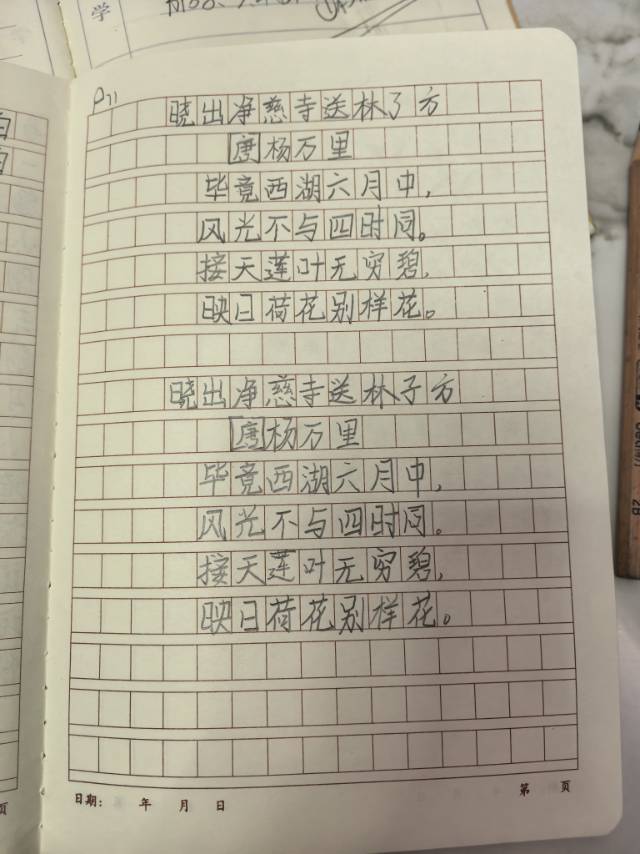 学
P71
晓出净慈寺送林了方
[唐]杨万里
毕竟西湖六月中，
风光不与四时同。
接天莲叶无穷碧，
映日荷花别样花。
晓出净慈寺送林子方
[唐]杨万里
毕竟西湖六月中，
风光不与四时同。
接天莲叶无穷碧，
映日荷花别样花。
日期： 年 月 日
第 页
页
2B